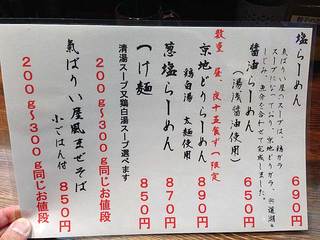 塩らーめん 690円
氣ばりい屋のスープは、鶏ガラ
スープになっており、京地どりガラ、
しじみ、魚介を合わせて完成しました。
醤油らーめん 650円
(湯浅醤油使用)
数量 昼、夜十五食ずつ限定
京地どりらーめん 890円
鶏白湯 太麺使用
葱塩らーめん 870円
つけ麺 850円
清湯スープ又鶏白湯スープ選べます
200g〜300g同じお値段
氣ばりい屋風まぜそば 850円
小ごはん付
200g〜300g同じお値段